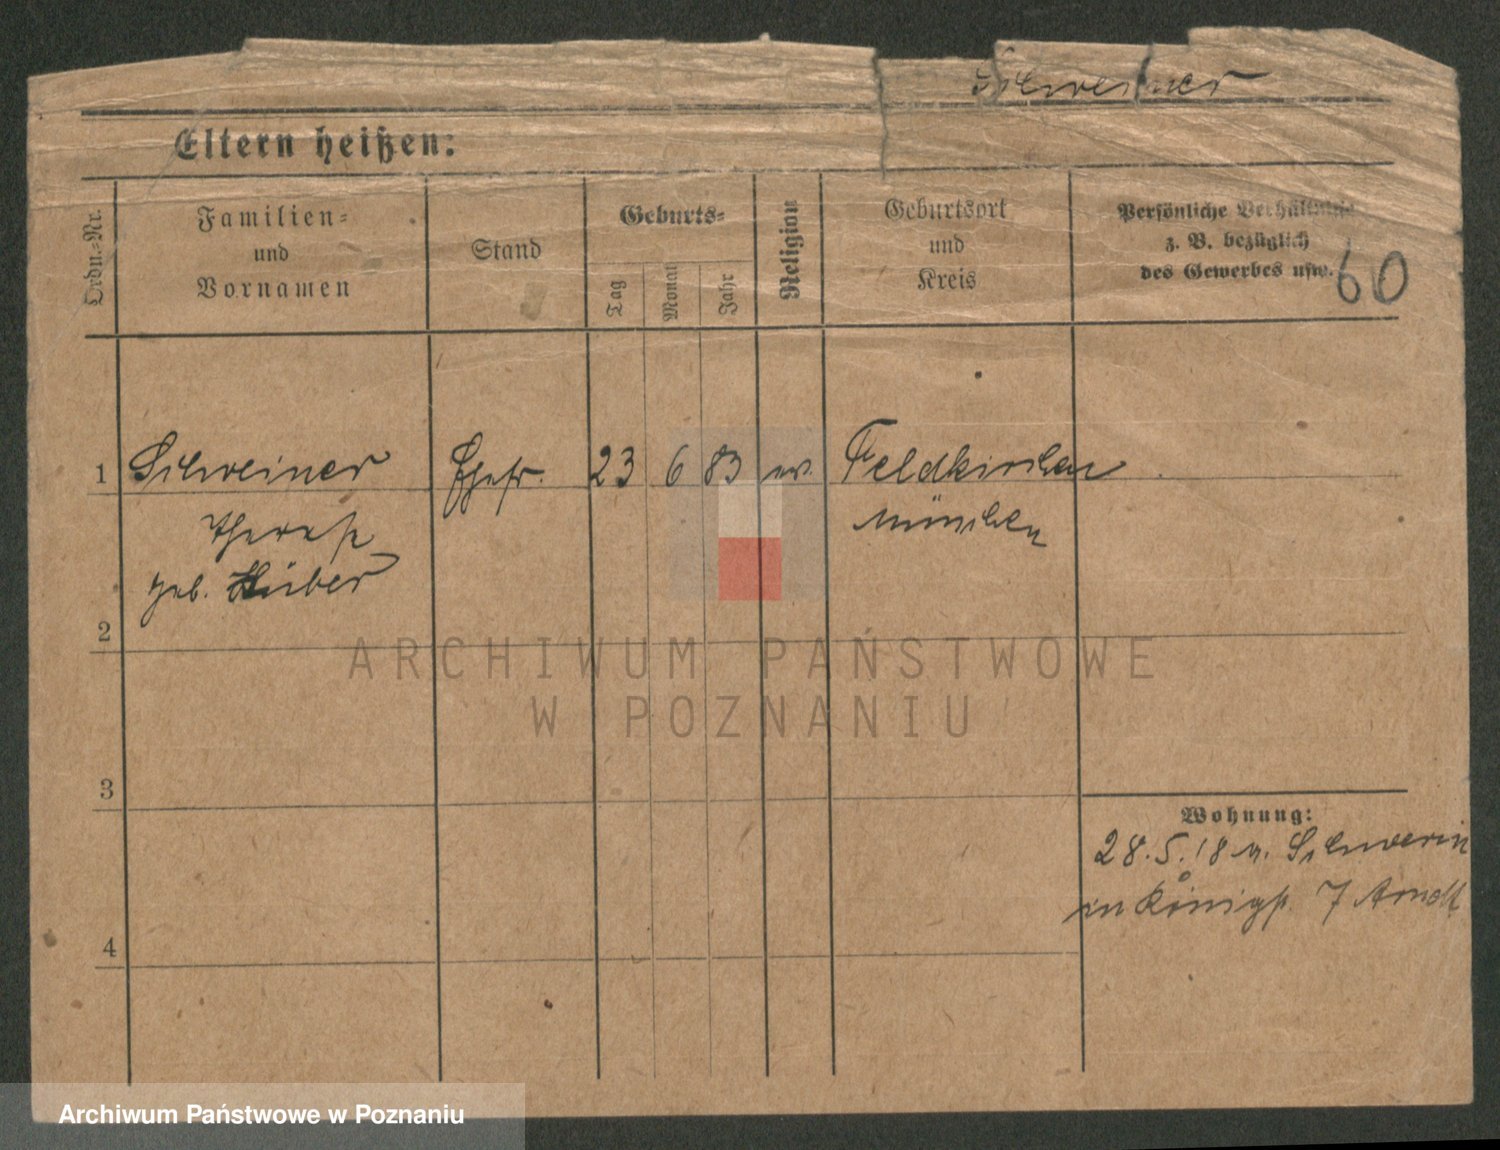 Schreiner
Eltern heißen:
Ordn.-Nr.
Familien-
und
Vornamen
Stand
Geburts-
Tag
Monat
Jahr
Religion
Geburtsort
und
Kreis
Persönliche Verhältnisse
z. B. bezüglich
des Gewerbes usw.
60
1 Schreiner Ehefr. 23 6 83 ev. Feldkirchen
Therese München
geb. Huber
2
3
4
Wohnung:
28.5.18 n. Schwerin
in Königstr. 7 Arndt
ARCHIWUM PAŃSTWOWE
W POZNANIU
Archiwum Państwowe w Poznaniu